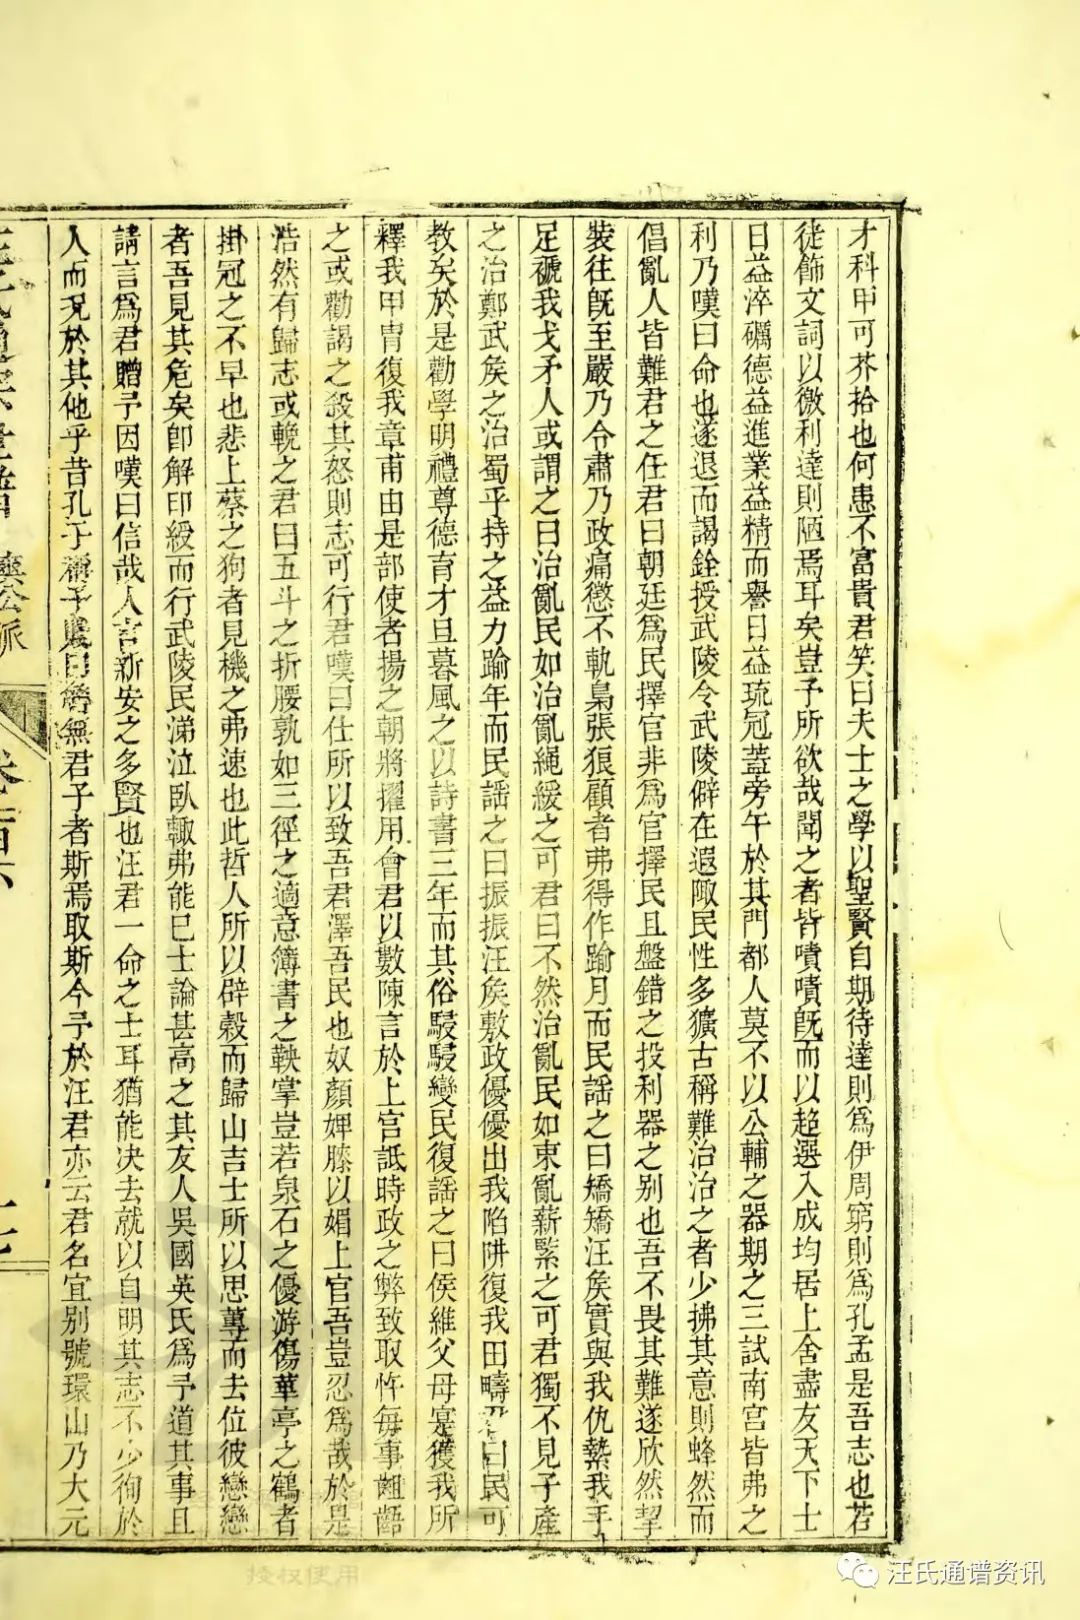 才科甲可芥拾也何患不富貴君笑曰夫士之學以聖賢自期待達則爲伊周窮則爲孔孟是吾志也若
徒飾文詞以徼利達則陋焉耳矣豈予所欲哉聞之者皆嘖嘖旣而以超選入成均居上舍盡友天下士
日益淬礪德益進業益精而譽日益琉冠蓋旁午於其門都人莫不以公輔之器期之三試南宮皆弗之
利乃嘆曰命也遂退而謁銓授武陵令武陵僻在遐陬民性多獷古稱難治治之者少拂其意則蜂然而
倡亂人皆難君之任君曰朝廷爲民擇官非爲官擇民且盤錯之投利器之別也吾不畏其難遂欣然挈
裝往旣至嚴乃令肅乃政痛懲不軌梟張狼顧者弗得作踰月而民謡之曰矯矯汪矦實與我仇縶我手
足褫我戈矛人或謂之曰治亂民如治亂繩緩之可君曰不然治亂民如東亂薪緊之可君獨不見子產
之治鄭武矦之治蜀乎持之益力踰年而民謡之曰振振汪矦敷政優優出我陷阱復我田疇君曰民可
教矣於是勸學明禮尊德育才旦暮風之以詩書三年而其俗駸駸變民復謡之曰侯維父母寔獲我所
釋我甲冑復我章甫由是部使者揚之朝將擢用會君以數陳言於上官詆時政之弊致取忤每事齟齬
之或勸謁之殺其怒則志可行君嘆曰仕所以致吾君澤吾民也奴顔婢膝以媚上官吾豈忍爲哉於是
浩然有歸志或輓之君曰五斗之折腰孰如三徑之適意簿書之鞅掌豈若泉石之優游傷華亭之鶴者
掛冠之不早也悲上蔡之狗者見機之弗速也此哲人所以辟穀而歸山吉士所以思蓴而去位彼戀戀
者吾見其危矣卽解印綬而行武陵民涕泣臥轍弗能巳士論甚高之其友人吳國英氏爲予道其事且
請言爲君贈予因嘆曰信哉人言新安之多賢也汪君一命之士耳猶能决去就以自明其志不少徇於
人而況於其他乎昔孔子稱子賤曰魯無君子者斯焉取斯今予於汪君亦云君名宜別號環山乃大元
汪氏通宗世譜 爽公派 卷
汪氏通谱资讯
授权使用